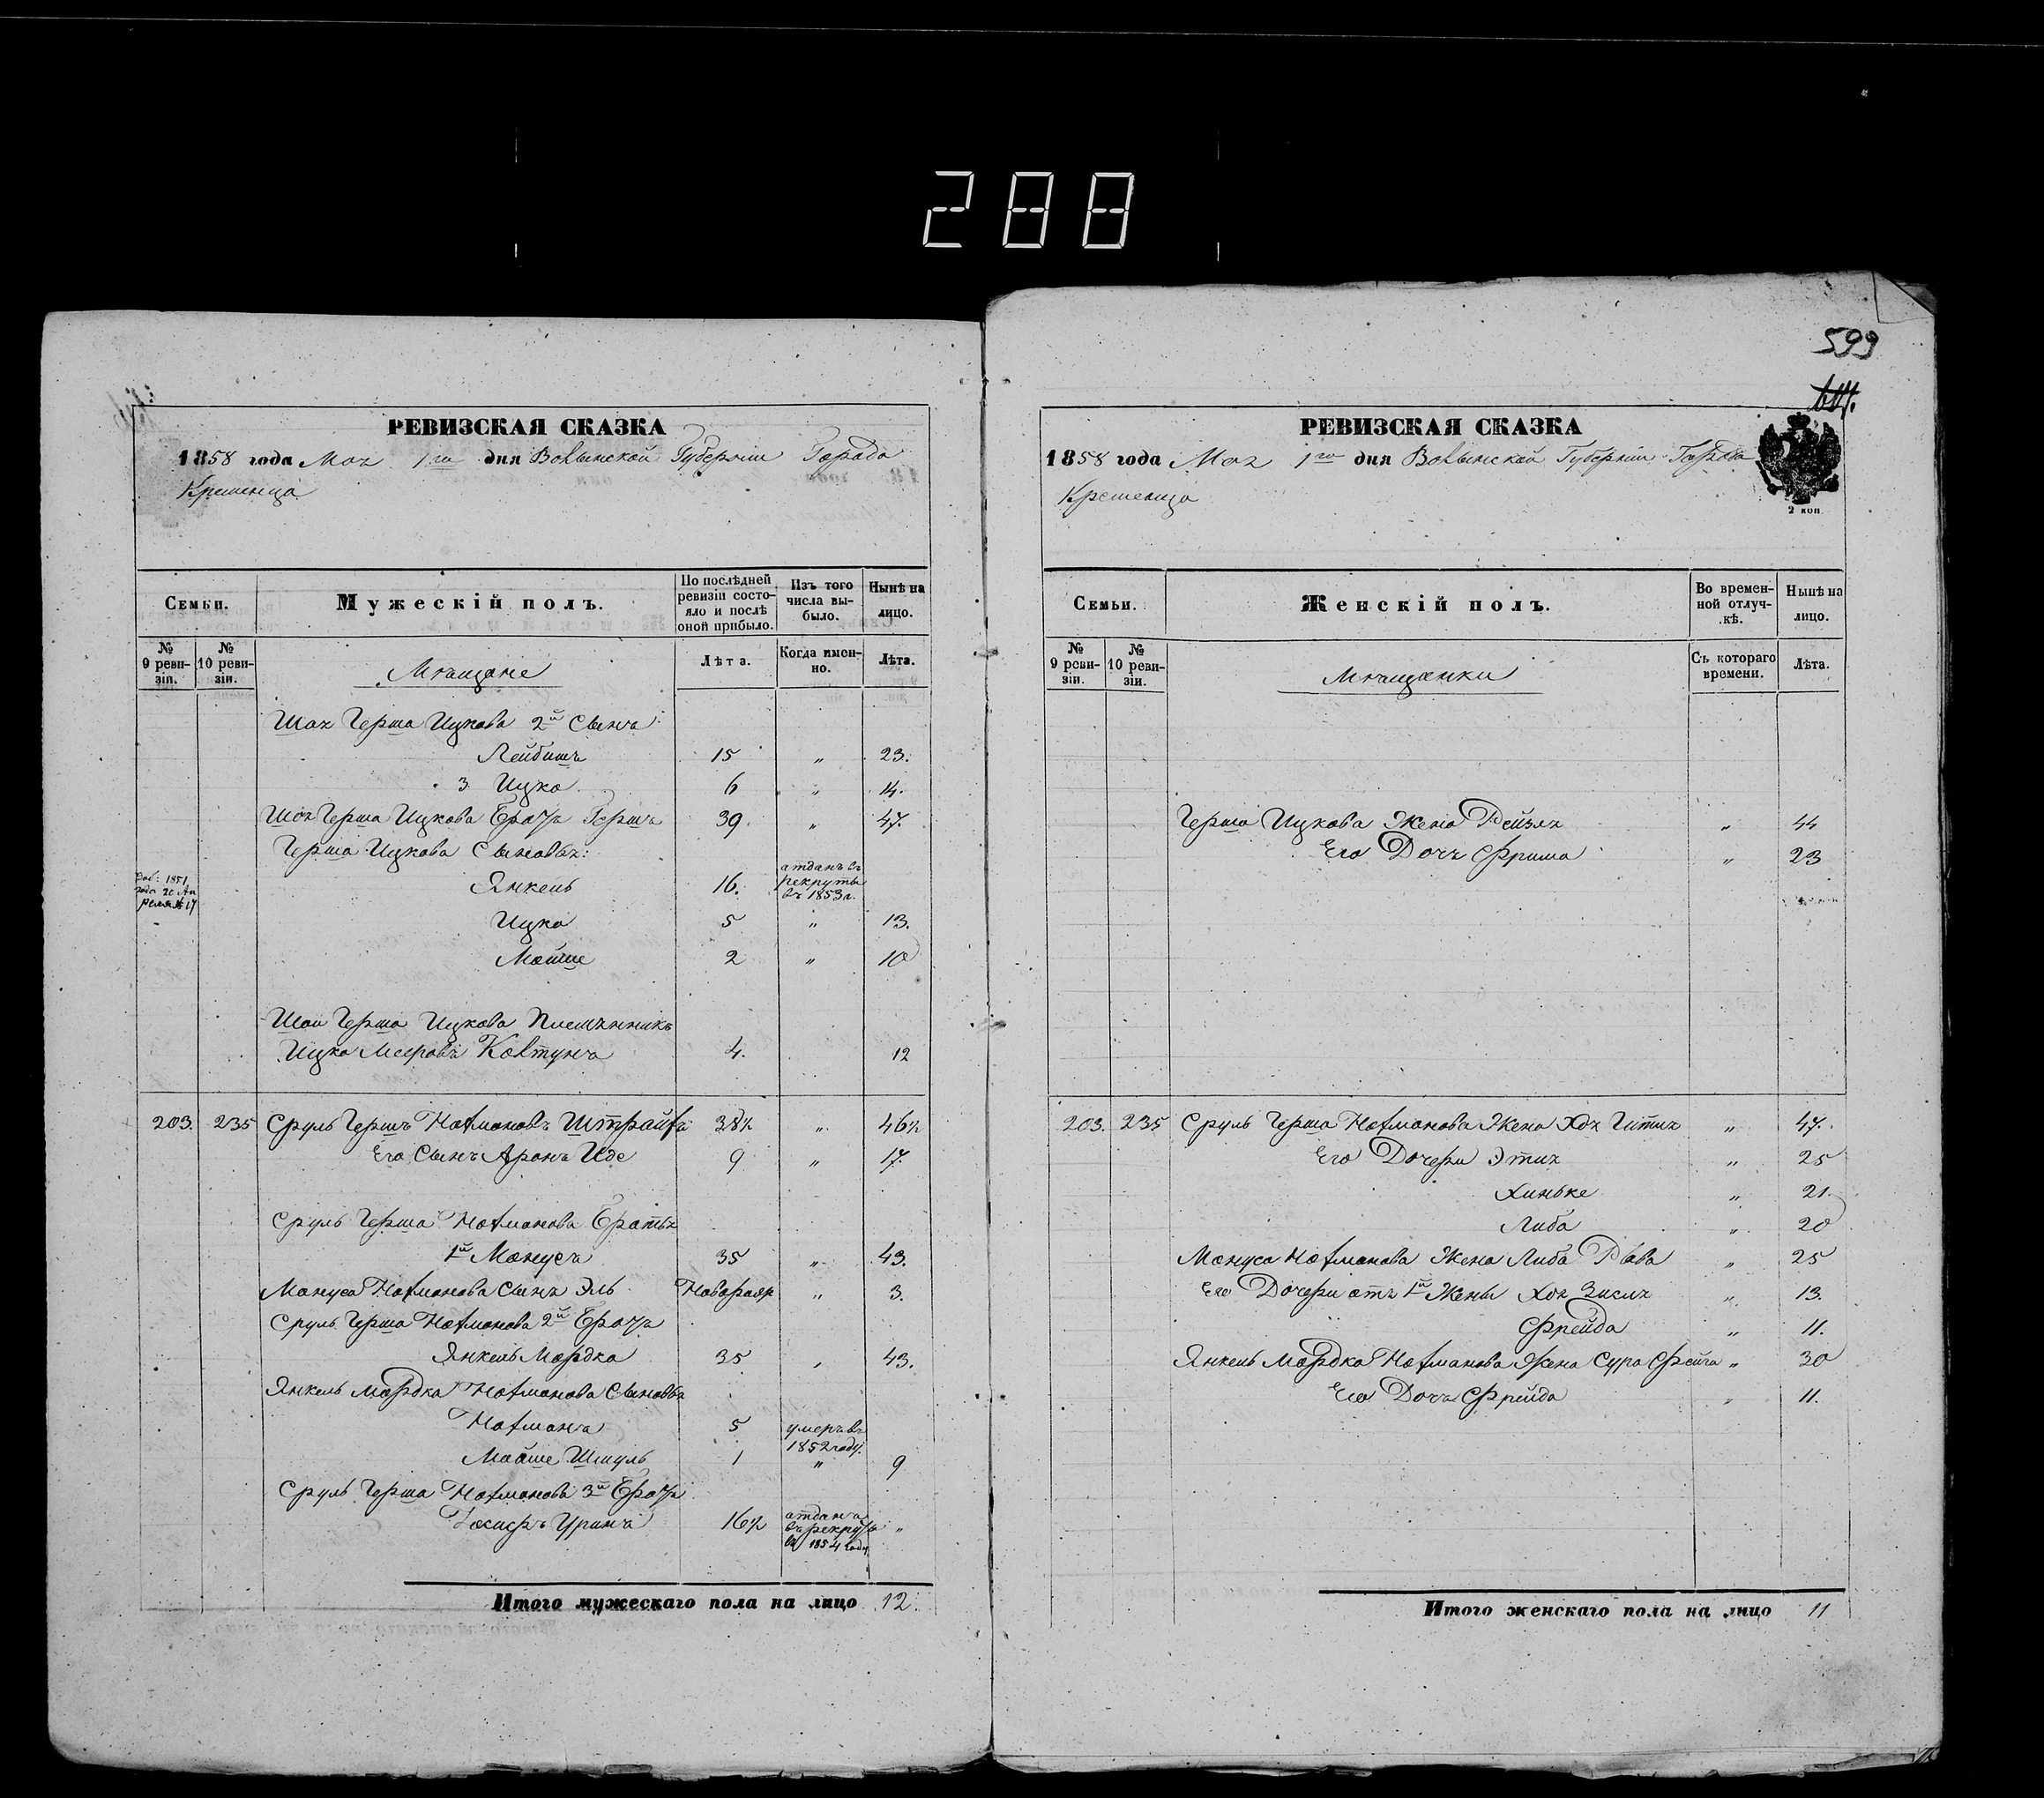 288
РЕВИЗСКАЯ СКАЗКА
1858 года Мая 1го дня Волынской Губернии Города
Кременца
Семьи.
Мужескій полъ.
По послѣдней ревизіи состояло и послѣ оной прибыло.
Изъ того числа выбыло.
Нынѣ на лицо.
№ 9 ревизіи.
№ 10 ревизіи.
Мѣщане
Лѣта.
Когда именно.
Лѣта.
Шая Герша Ицкова 2й Сынъ
Лейбишъ 15 „ 23.
3 Ицко 6 „ 14.
Шая Герша Ицкова Братъ Гершъ 39. „ 47.
Герша Ицкова Сыновья:
Янкель 16. отданъ въ рекруты въ 1853 г.
Ицко 5 „ 13.
Мойше 2 „ 10
Шаи Герша Ицкова Племянникъ
Ицко Мееровъ Колтунъ 4. 12
203. 235 Сруль Гершъ Нахмановъ 38½ „ 46½
Его Сынъ Аронъ Иде 9 „ 17.
Сруль Герша Нахманова Братья
1й Манусъ 35 „ 43.
Мануса Нахманова Сынъ Эль Новорожд „ 3.
Сруль Герша Нахманова 2й Братъ
Янкель Мордко 35 „ 43.
Янкель Мордка Нахманова Сыновья
Нахманъ 5 умеръ въ 1852 году.
Мойше Шмуль 1 „ 9
Сруль Герша Нахманова 3й Братъ
16½ отданъ въ рекруты въ 1854 году „
Итого мужескаго пола на лицо 12.
599
РЕВИЗСКАЯ СКАЗКА
1858 года Мая 1го дня Волынской Губерніи Города
Кременца
2 коп
Семьи.
Женскій полъ.
Во временной отлучкѣ.
Нынѣ на лицо.
№ 9 ревизіи.
№ 10 ревизіи.
Мѣщанки
Съ котораго времени.
Лѣта.
Герша Ицкова Жена Рейзля „ 44
Его Дочь Фрима „ 23
203. 235 Сруль Герша Нахманова Жена Хая Гитля „ 47.
Его Дочери Этля „ 25
Хиньке „ 21.
Либа „ 20
Мануса Нахманова Жена Либа „ 25
Его Дочери отъ 1й Жены Хая Зисля „ 13.
Фрейда „ 11.
Янкель Мордка Нахманова Жена Сура Фейга „ 30
Его Дочь Фрейда „ 11.
Итого женскаго пола на лицо 11